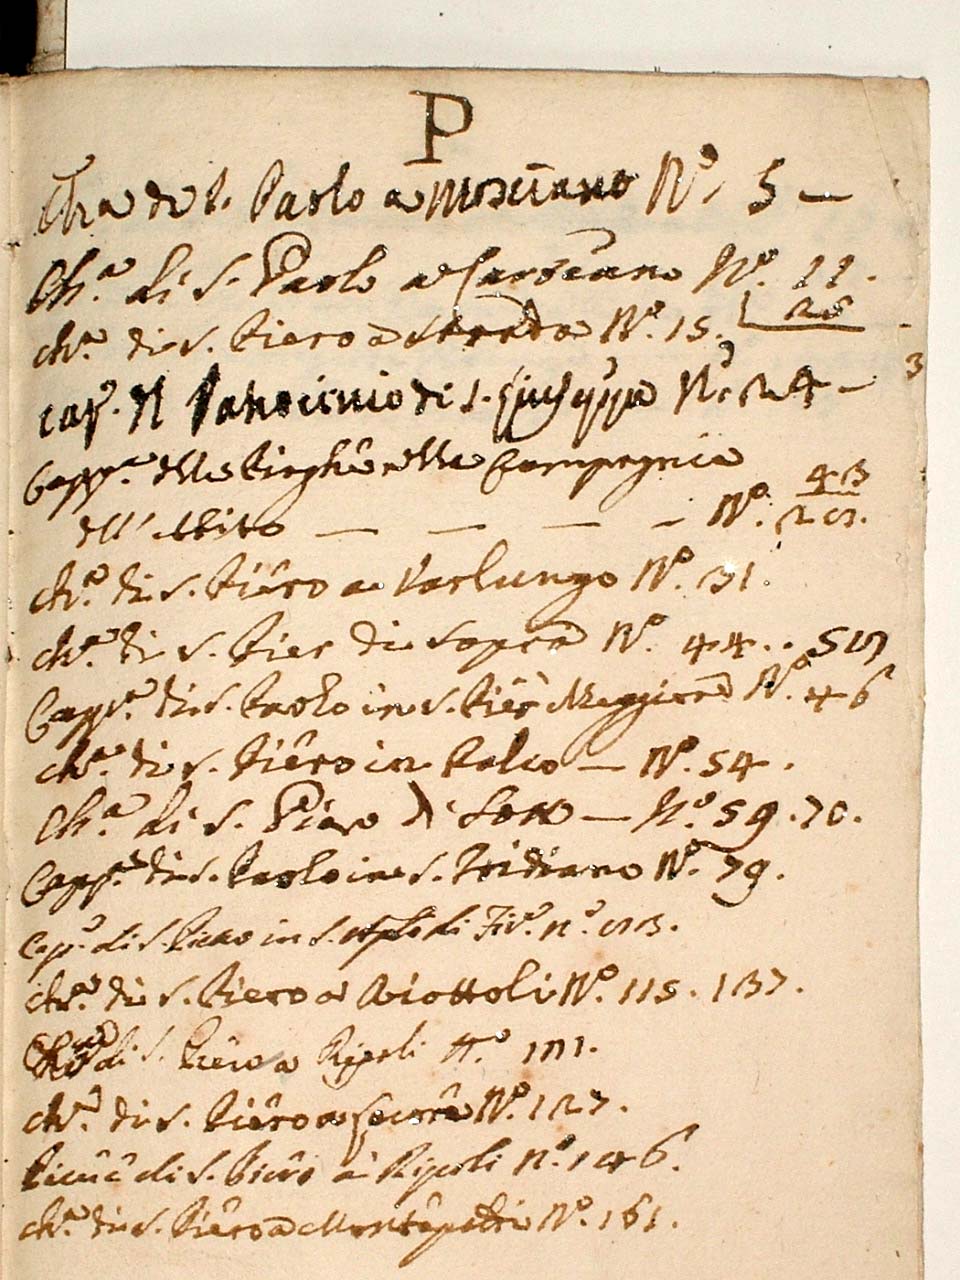 P
Ch.a di S. Paolo a Mosciano N.o 5 —
Ch.a di S. Paolo a N.o 11.
Ch.a di S. Piero a Strada N.o 15. 26
Cap. del Patrocinio di S. Giuseppe N.o 24 — 3
Capp.a della della Compagnia
dell' — — — — N.o 43
Ch.a di S. Piero a Varlungo N.o 31.
Ch.a di S. Pier di Sopra N.o 44.
Capp.a di S. Paolo in S. Pier Maggiore N.o 46
Ch.a di S. Piero in Palco — N.o 54.
Ch.a di S. Piero di Sotto — N.o 59. 70.
Capp.a di S. Paolo in S. Fridiano N.o 79.
Cap.a di S. Piero in S. di Fir.e n.o
Ch.a di S. Piero a Quiottoli N.o 115. 137.
di S. Piero a Ripoli N.o
Ch.a di S. Piero a N.o 127.
Pieve di S. Piero a Ripoli N.o 146.
Ch.a di S. Piero a N.o 161.